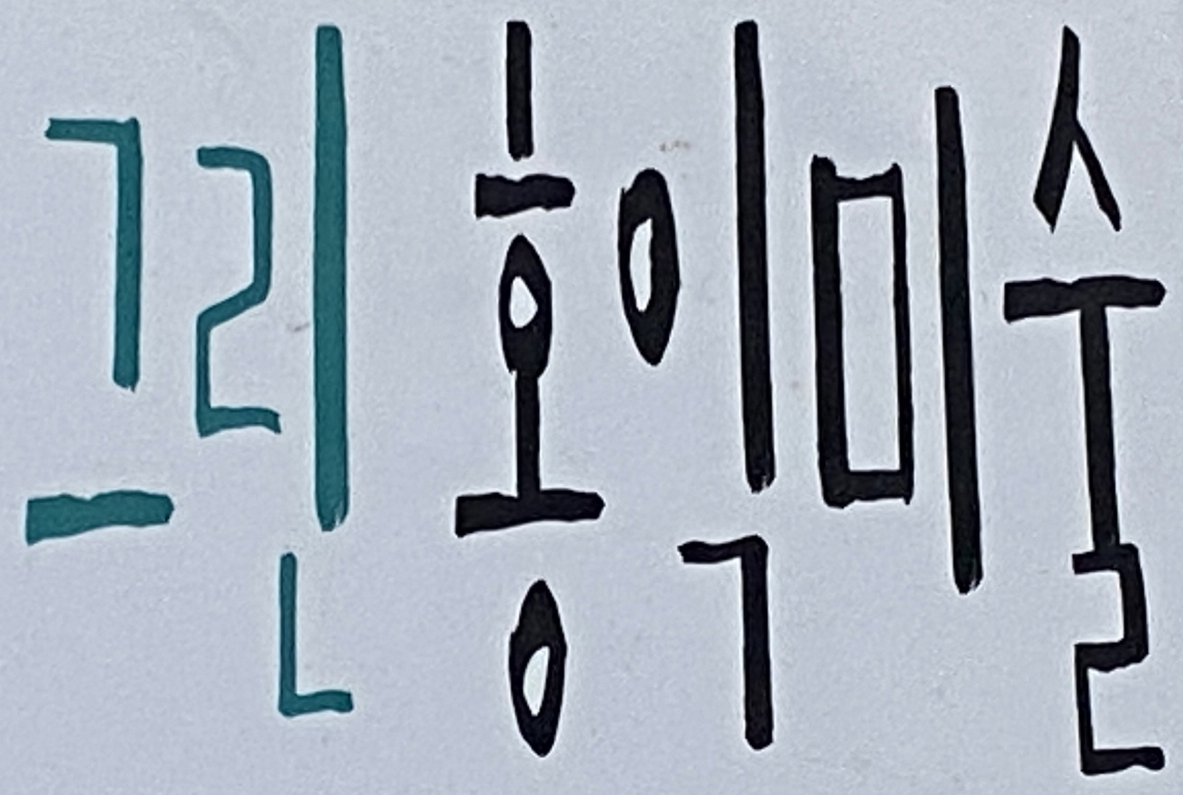 그린홍익미술